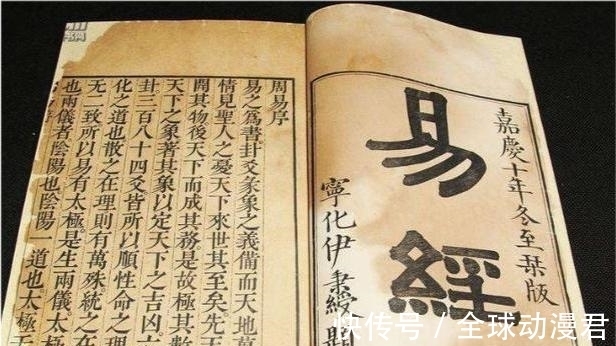 嘉慶十年冬至栞版
易經
寧化伊秉綬題
周易序
易之爲書卦爻彖象之義備而天
情見聖人之憂天下來世其至矣先天
開其物後天下而成其務是故極其數
天下之象著其象以定天下之吉凶六
卦三百八十四爻皆所以順性命之理
化之道也散之在理則有萬殊統之
无二致所以易有太極是生兩儀太極
也兩儀者陰陽也陰陽一道也太極无
快传号/全球动漫君